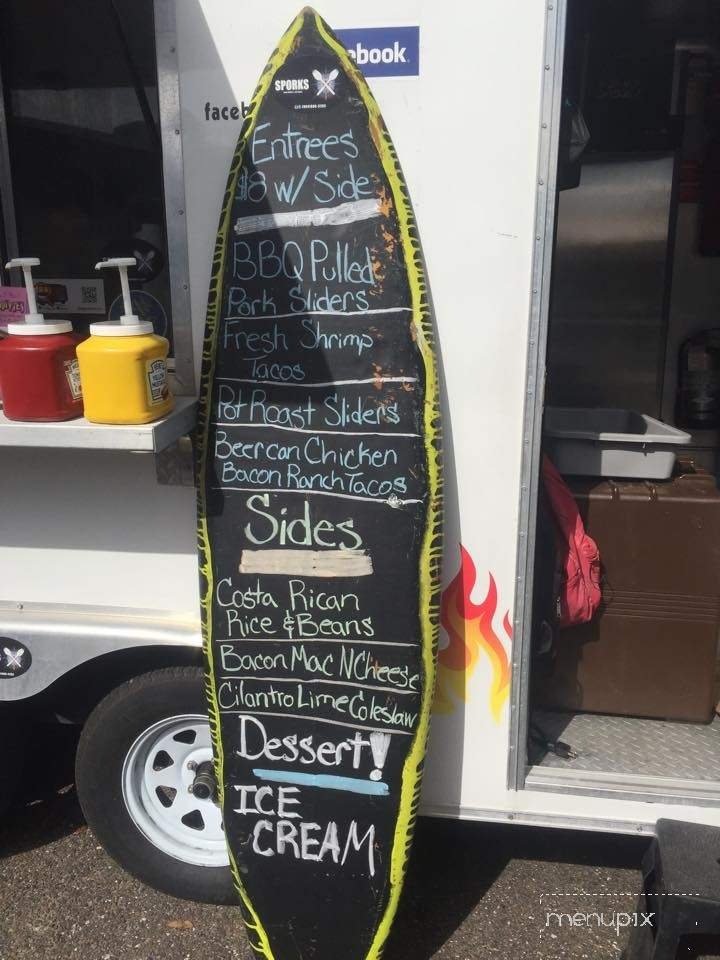 ebook.
SPORKS
faceb
Entrees
$8 w/ Side
BBQ Pulled
Pork Sliders
Fresh Shrimp
Tacos
Pot Roast Sliders
Beercan Chicken
Bacon Ranch Tacos
Sides
Costa Rican
Rice & Beans
Bacon Mac N Cheese
Cilantro Lime Coleslaw
Dessert!
ICE
CREAM
menupix